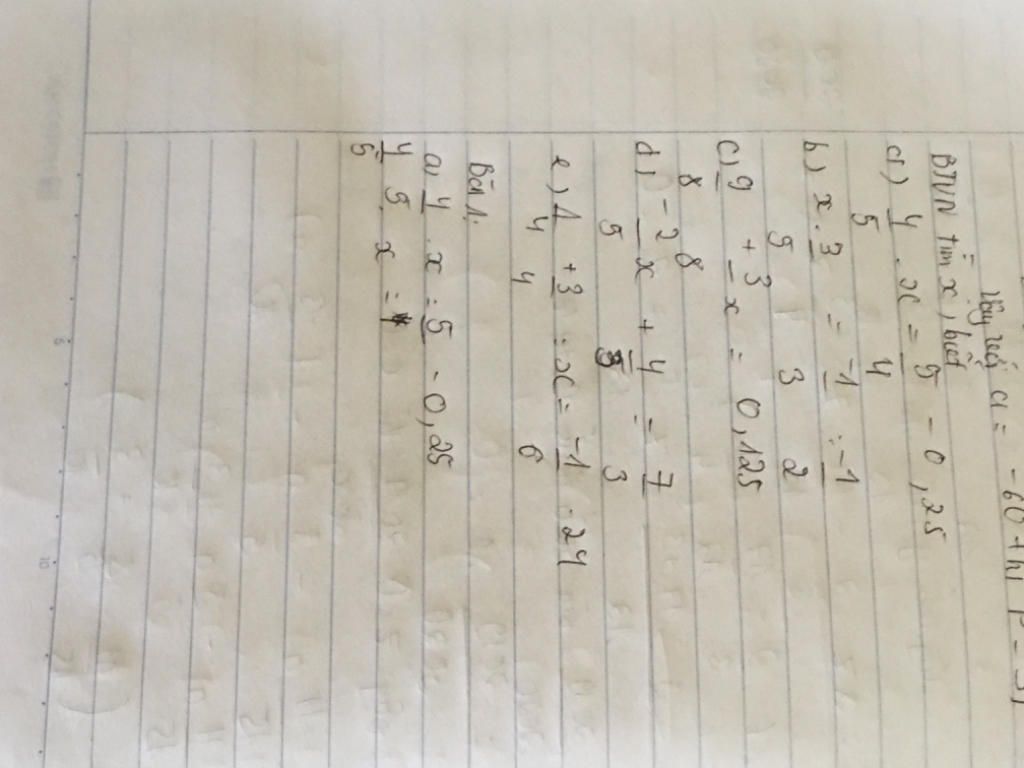 Vậy với a = -60 thì P = 
BTVN tìm x, biết
a) 4/5 . x = 5/4 - 0,25
b) x . 3/5 = -1/3 : -1/2
c) 9/8 + 3/8 x = 0,125
d) -2/5 x + 4/5 = 7/3
e) 1/4 + 3/4 : x = -1/6 . 24
Bài 1.
a, 4 . x = 5 - 0,25
4/5 5. x = 1